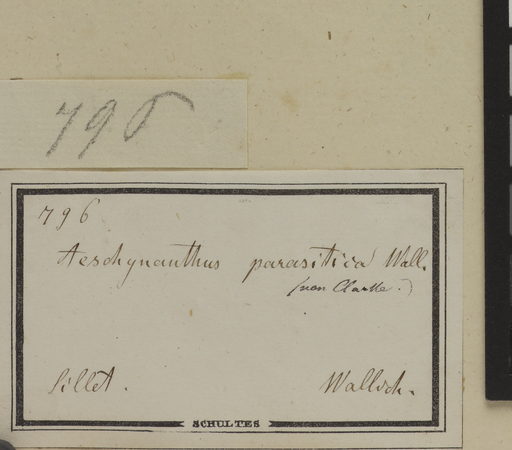 796
796
Aeschynanthus parasitica Wall.
(non Clarke.)
Sillet. Wallich.
SCHULTES